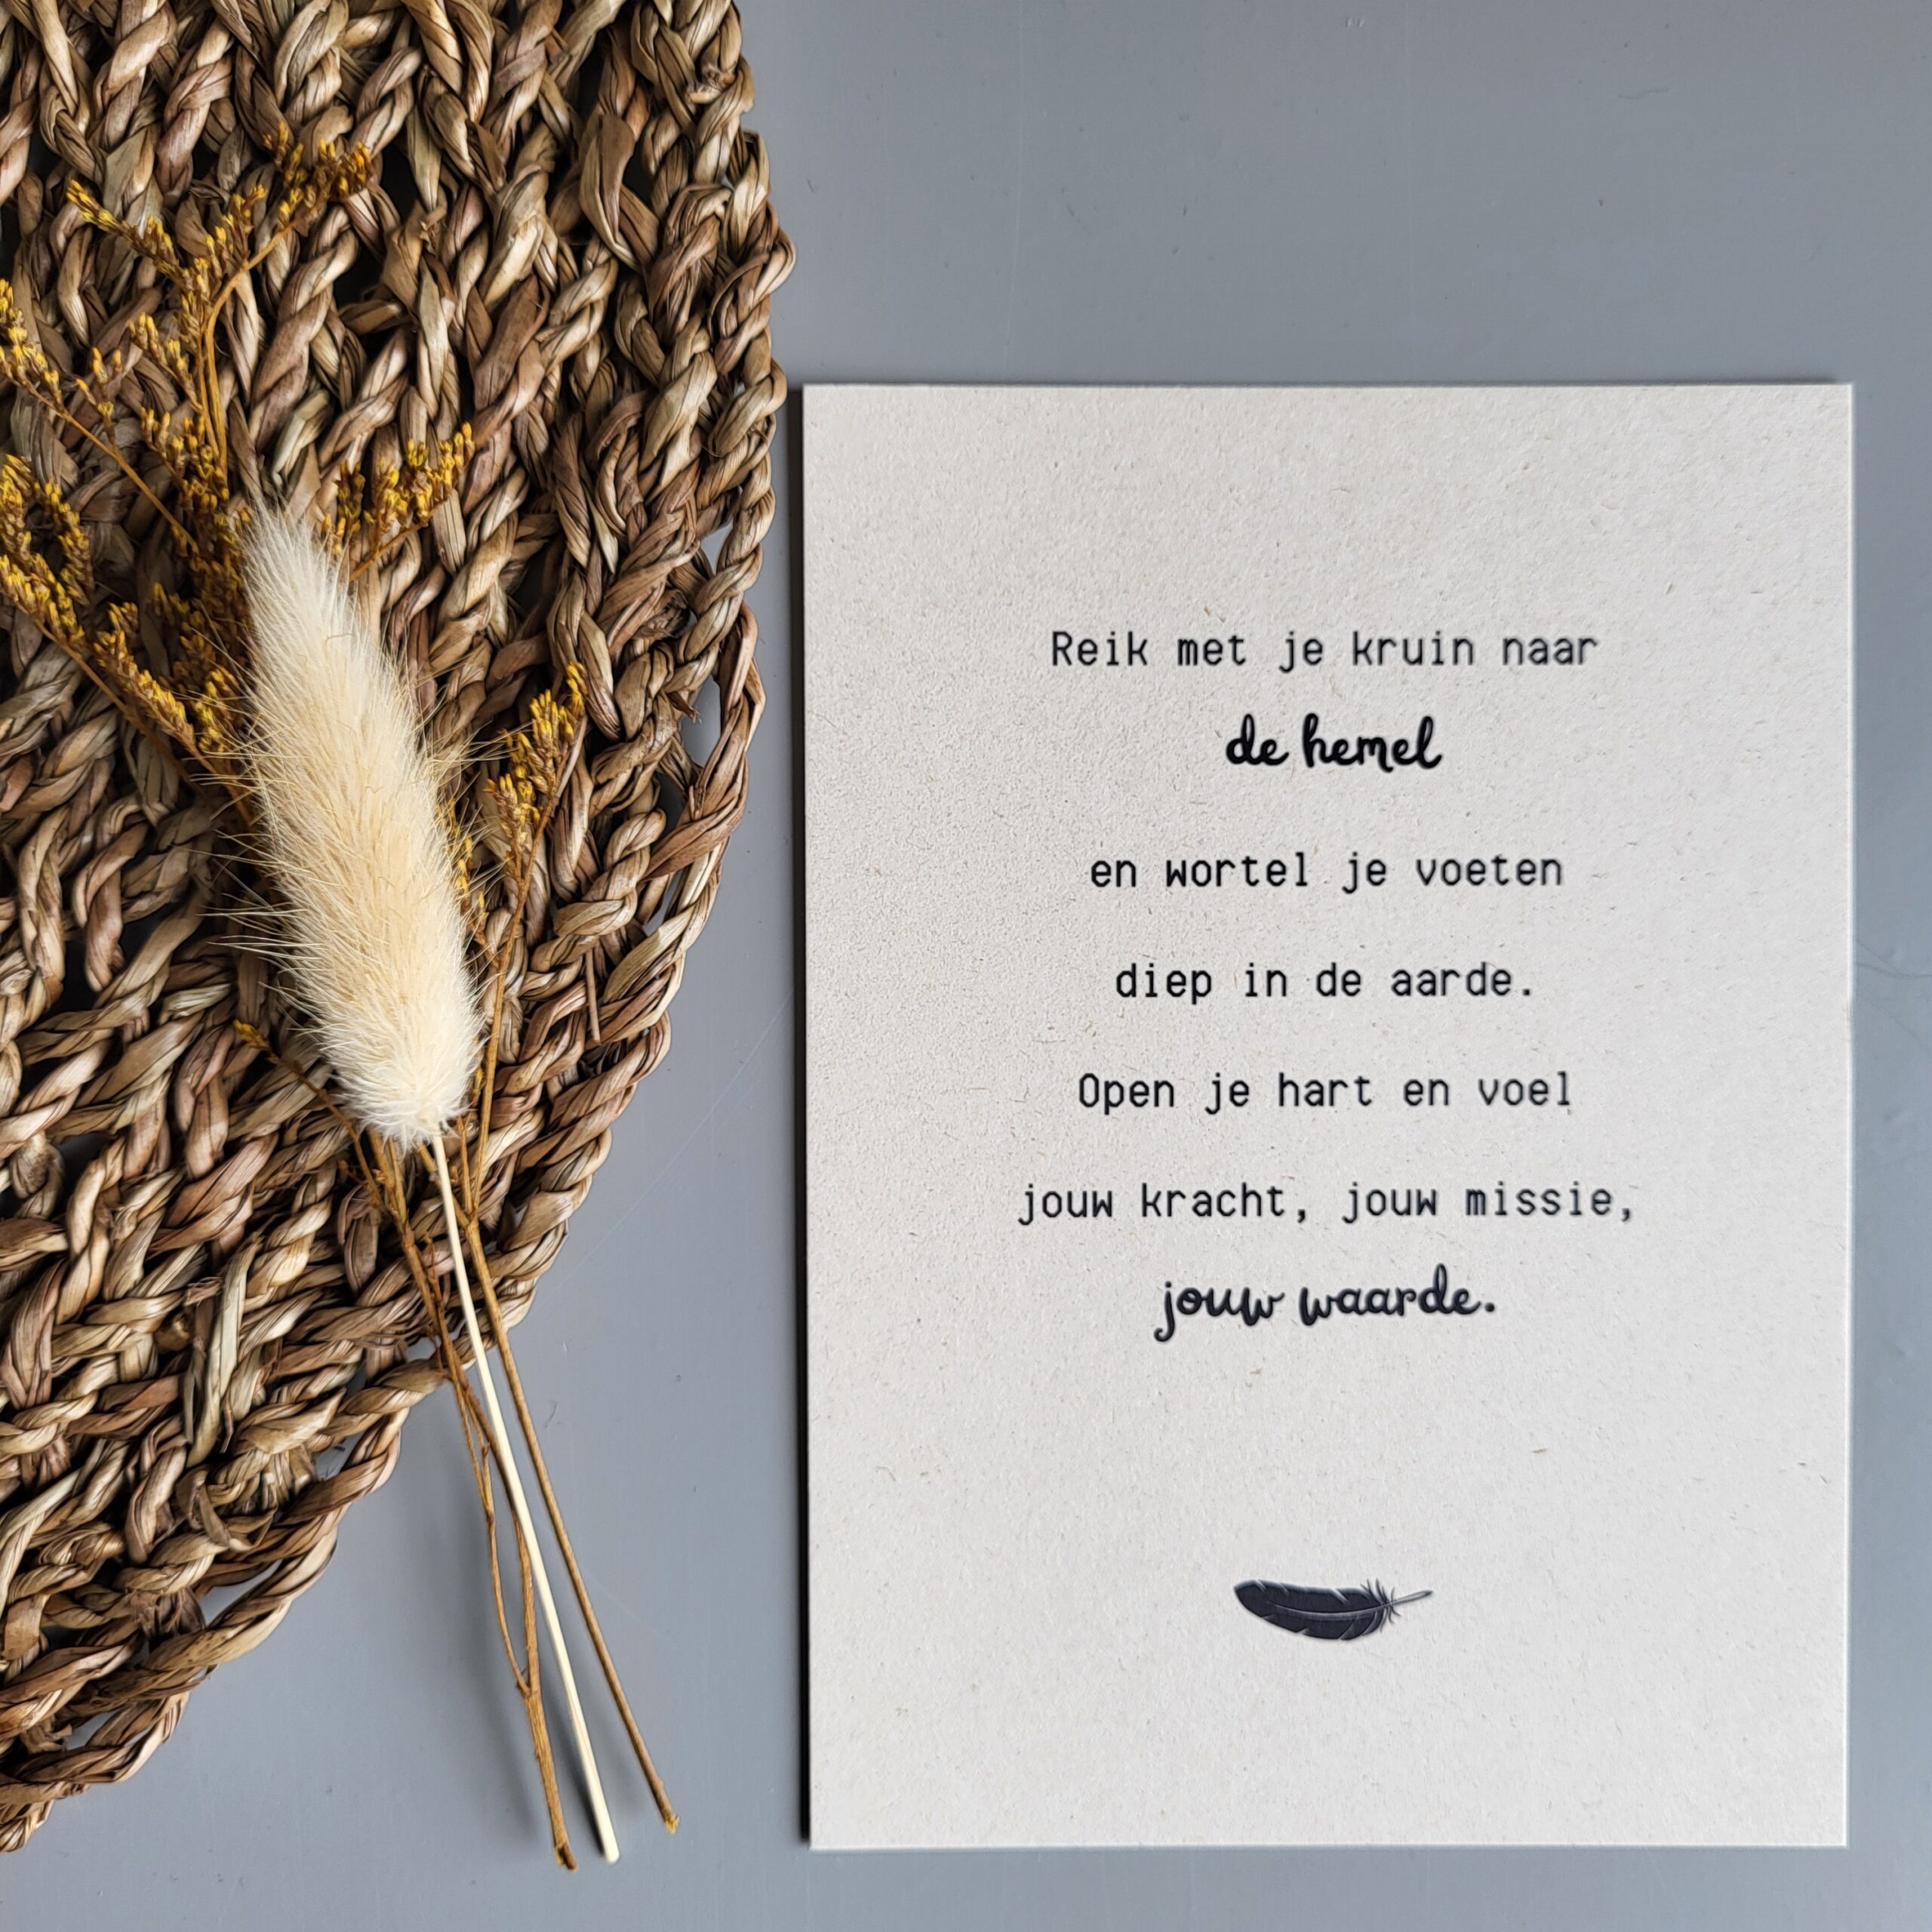 Reik met je kruin naar
de hemel
en wortel je voeten
diep in de aarde.
Open je hart en voel
jouw kracht, jouw missie,
jouw waarde.